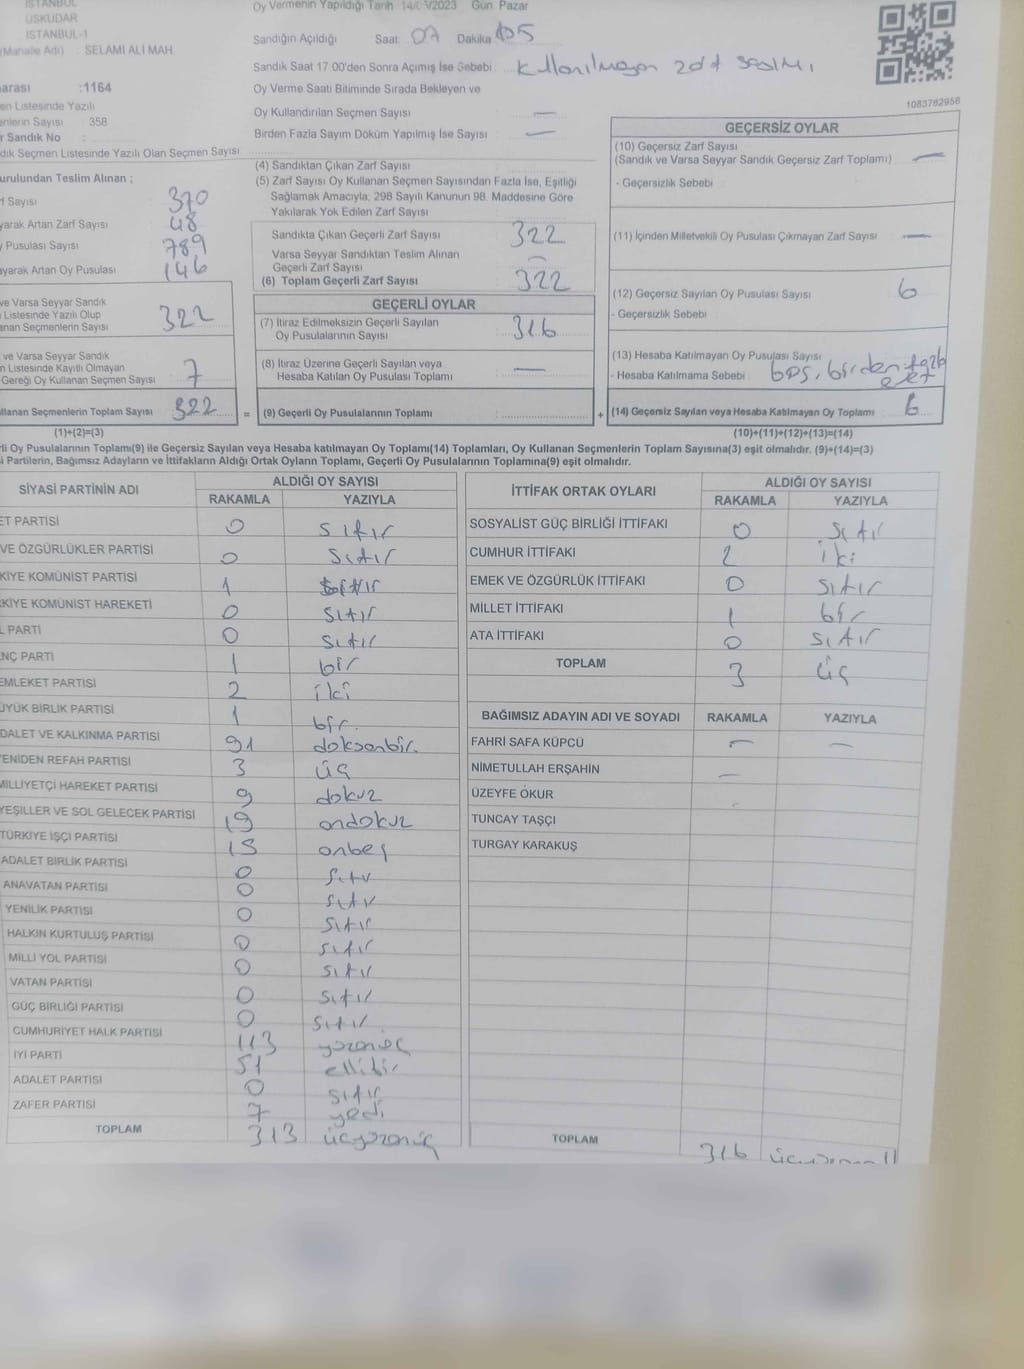 İSTANBUL
ÜSKÜDAR
İSTANBUL-1
(Mahalle Adı) : SELAMI ALİ MAH.
:1164
Oy Vermenin Yapıldığı Tarih 14/ /2023 Gün Pazar
Sandığın Açıldığı Saat: 07 Dakika 05
Sandık Saat 17:00'den Sonra Açımış İse Sebebi: Kullanılmayan sayımı
Oy Verme Saati Bitiminde Sırada Bekleyen ve
Oy Kullandırılan Seçmen Sayısı —
Birden Fazla Sayım Döküm Yapılmış İse Sayısı : —
1083762958
en Listesinde Yazılı
enlerin Sayısı 358
r Sandık No :
dık Seçmen Listesinde Yazılı Olan Seçmen Sayısı:
urulundan Teslim Alınan ;
f Sayısı 370
yarak Artan Zarf Sayısı 48
y Pusulası Sayısı 789
ayarak Artan Oy Pusulası 146
ve Varsa Seyyar Sandık
Listesinde Yazılı Olup
anan Seçmenlerin Sayısı 322
ve Varsa Seyyar Sandık
n Listesinde Kayıtlı Olmayan
Gereği Oy Kullanan Seçmen Sayısı 7
llanan Seçmenlerin Toplam Sayısı 322 =
(1)+(2)=(3)
(4) Sandıktan Çıkan Zarf Sayısı :
(5) Zarf Sayısı Oy Kullanan Seçmen Sayısından Fazla İse, Eşitliği
Sağlamak Amacıyla; 298 Sayılı Kanunun 98. Maddesine Göre
Yakılarak Yok Edilen Zarf Sayısı :
Sandıkta Çıkan Geçerli Zarf Sayısı : 322
Varsa Seyyar Sandıktan Teslim Alınan
Geçerli Zarf Sayısı : —
(6) Toplam Geçerli Zarf Sayısı : 322
GEÇERLİ OYLAR
(7) İtiraz Edilmeksizin Geçerli Sayılan
Oy Pusulasının Sayısı : 316
(8) İtiraz Üzerine Geçerli Sayılan veya
Hesaba Katılan Oy Pusulası Toplamı : —
(9) Geçerli Oy Pusulalarının Toplamı : +
GEÇERSİZ OYLAR
(10) Geçersiz Zarf Sayısı
(Sandık ve Varsa Seyyar Sandık Geçersiz Zarf Toplamı) : —
- Geçersizlik Sebebi :
(11) İçinden Milletvekili Oy Pusulası Çıkmayan Zarf Sayısı : —
(12) Geçersiz Sayılan Oy Pusulası Sayısı : 6
- Geçersizlik Sebebi :
(13) Hesaba Katılmayan Oy Pusulası Sayısı :
- Hesaba Katılmama Sebebi : boş, birden fazla
evet
(14) Geçersiz Sayılan veya Hesaba Katılmayan Oy Toplamı : 6
(10)+(11)+(12)+(13)=(14)
rli Oy Pusulalarının Toplamı(9) ile Geçersiz Sayılan veya Hesaba katılmayan Oy Toplamı(14) Toplamları, Oy Kullanan Seçmenlerin Toplam Sayısına(3) eşit olmalıdır. (9)+(14)=(3)
i Partilerin, Bağımsız Adayların ve İttifakların Aldığı Ortak Oyların Toplamı, Geçerli Oy Pusulalarının Toplamına(9) eşit olmalıdır.
SİYASİ PARTİNİN ADI
ALDIĞI OY SAYISI
RAKAMLA YAZIYLA
ET PARTİSİ 0 sıfır
VE ÖZGÜRLÜKLER PARTİSİ 0 sıfır
KİYE KOMÜNİST PARTİSİ 1
RKİYE KOMÜNİST HAREKETİ 0 sıfır
L PARTİ 0 sıfır
NÇ PARTİ 1 bir
EMLEKET PARTİSİ 2 iki
ÜYÜK BİRLİK PARTİSİ 1 bir.
DALET VE KALKINMA PARTİSİ 91 doksanbir.
YENİDEN REFAH PARTİSİ 3 üç
MİLLİYETÇİ HAREKET PARTİSİ 9 dokuz
YEŞİLLER VE SOL GELECEK PARTİSİ 19 ondokuz
TÜRKİYE İŞÇİ PARTİSİ 15 onbeş
ADALET BİRLİK PARTİSİ 0 sıfır
ANAVATAN PARTİSİ 0 sıfır
YENİLİK PARTİSİ 0 sıfır
HALKIN KURTULUŞ PARTİSİ 0 sıfır
MİLLİ YOL PARTİSİ 0 sıfır
VATAN PARTİSİ 0 sıfır
GÜÇ BİRLİĞİ PARTİSİ 0 sıfır
CUMHURİYET HALK PARTİSİ 113 yüzonüç
İYİ PARTİ 51 ellibir
ADALET PARTİSİ 0 sıfır
ZAFER PARTİSİ 7 yedi
TOPLAM 313 üçyüzonüç
İTTİFAK ORTAK OYLARI
ALDIĞI OY SAYISI
RAKAMLA YAZIYLA
SOSYALİST GÜÇ BİRLİĞİ İTTİFAKI 0 sıfır
CUMHUR İTTİFAKI 2 iki
EMEK VE ÖZGÜRLÜK İTTİFAKI 0 sıfır
MİLLET İTTİFAKI 1 bir
ATA İTTİFAKI 0 sıfır
TOPLAM 3 üç
BAĞIMSIZ ADAYIN ADI VE SOYADI RAKAMLA YAZIYLA
FAHRİ SAFA KÜPCÜ — —
NİMETULLAH ERŞAHİN —
ÜZEYFE OKUR -
TUNCAY TAŞÇI
TURGAY KARAKUŞ
TOPLAM 316